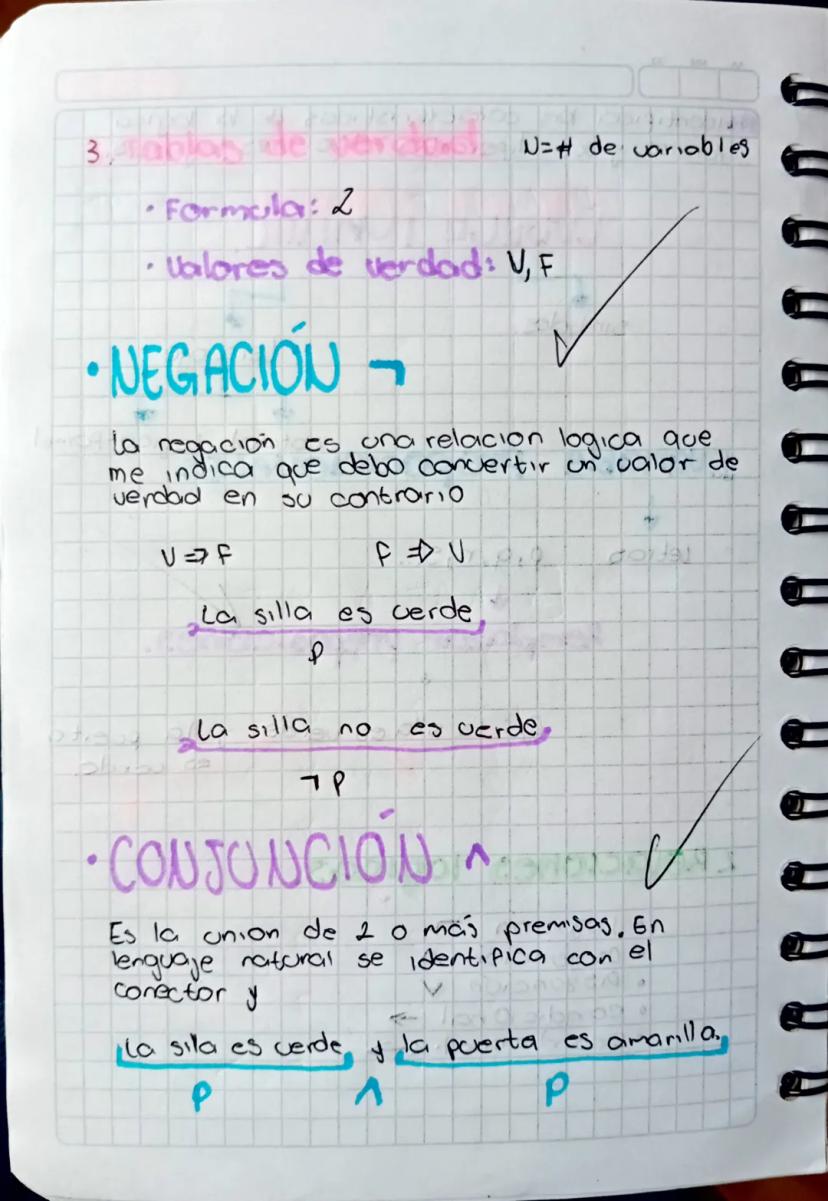 3. Tablas de verdad N=# de variables
• Formula: 2
• Valores de verdad: V, F
• NEGACIÓN ¬
La negación es una relacion logica que
me indica que debo convertir un valor de
verdad en su contrario
V ⇒ F F ⇒ V
La silla es verde
P
La silla no es verde
¬ P
• CONJUNCIÓN ^
Es la union de 2 o más premisas. En
lenguaje natural se identifica con el
conector y
La silla es verde y la puerta es amarilla.
P ^ P